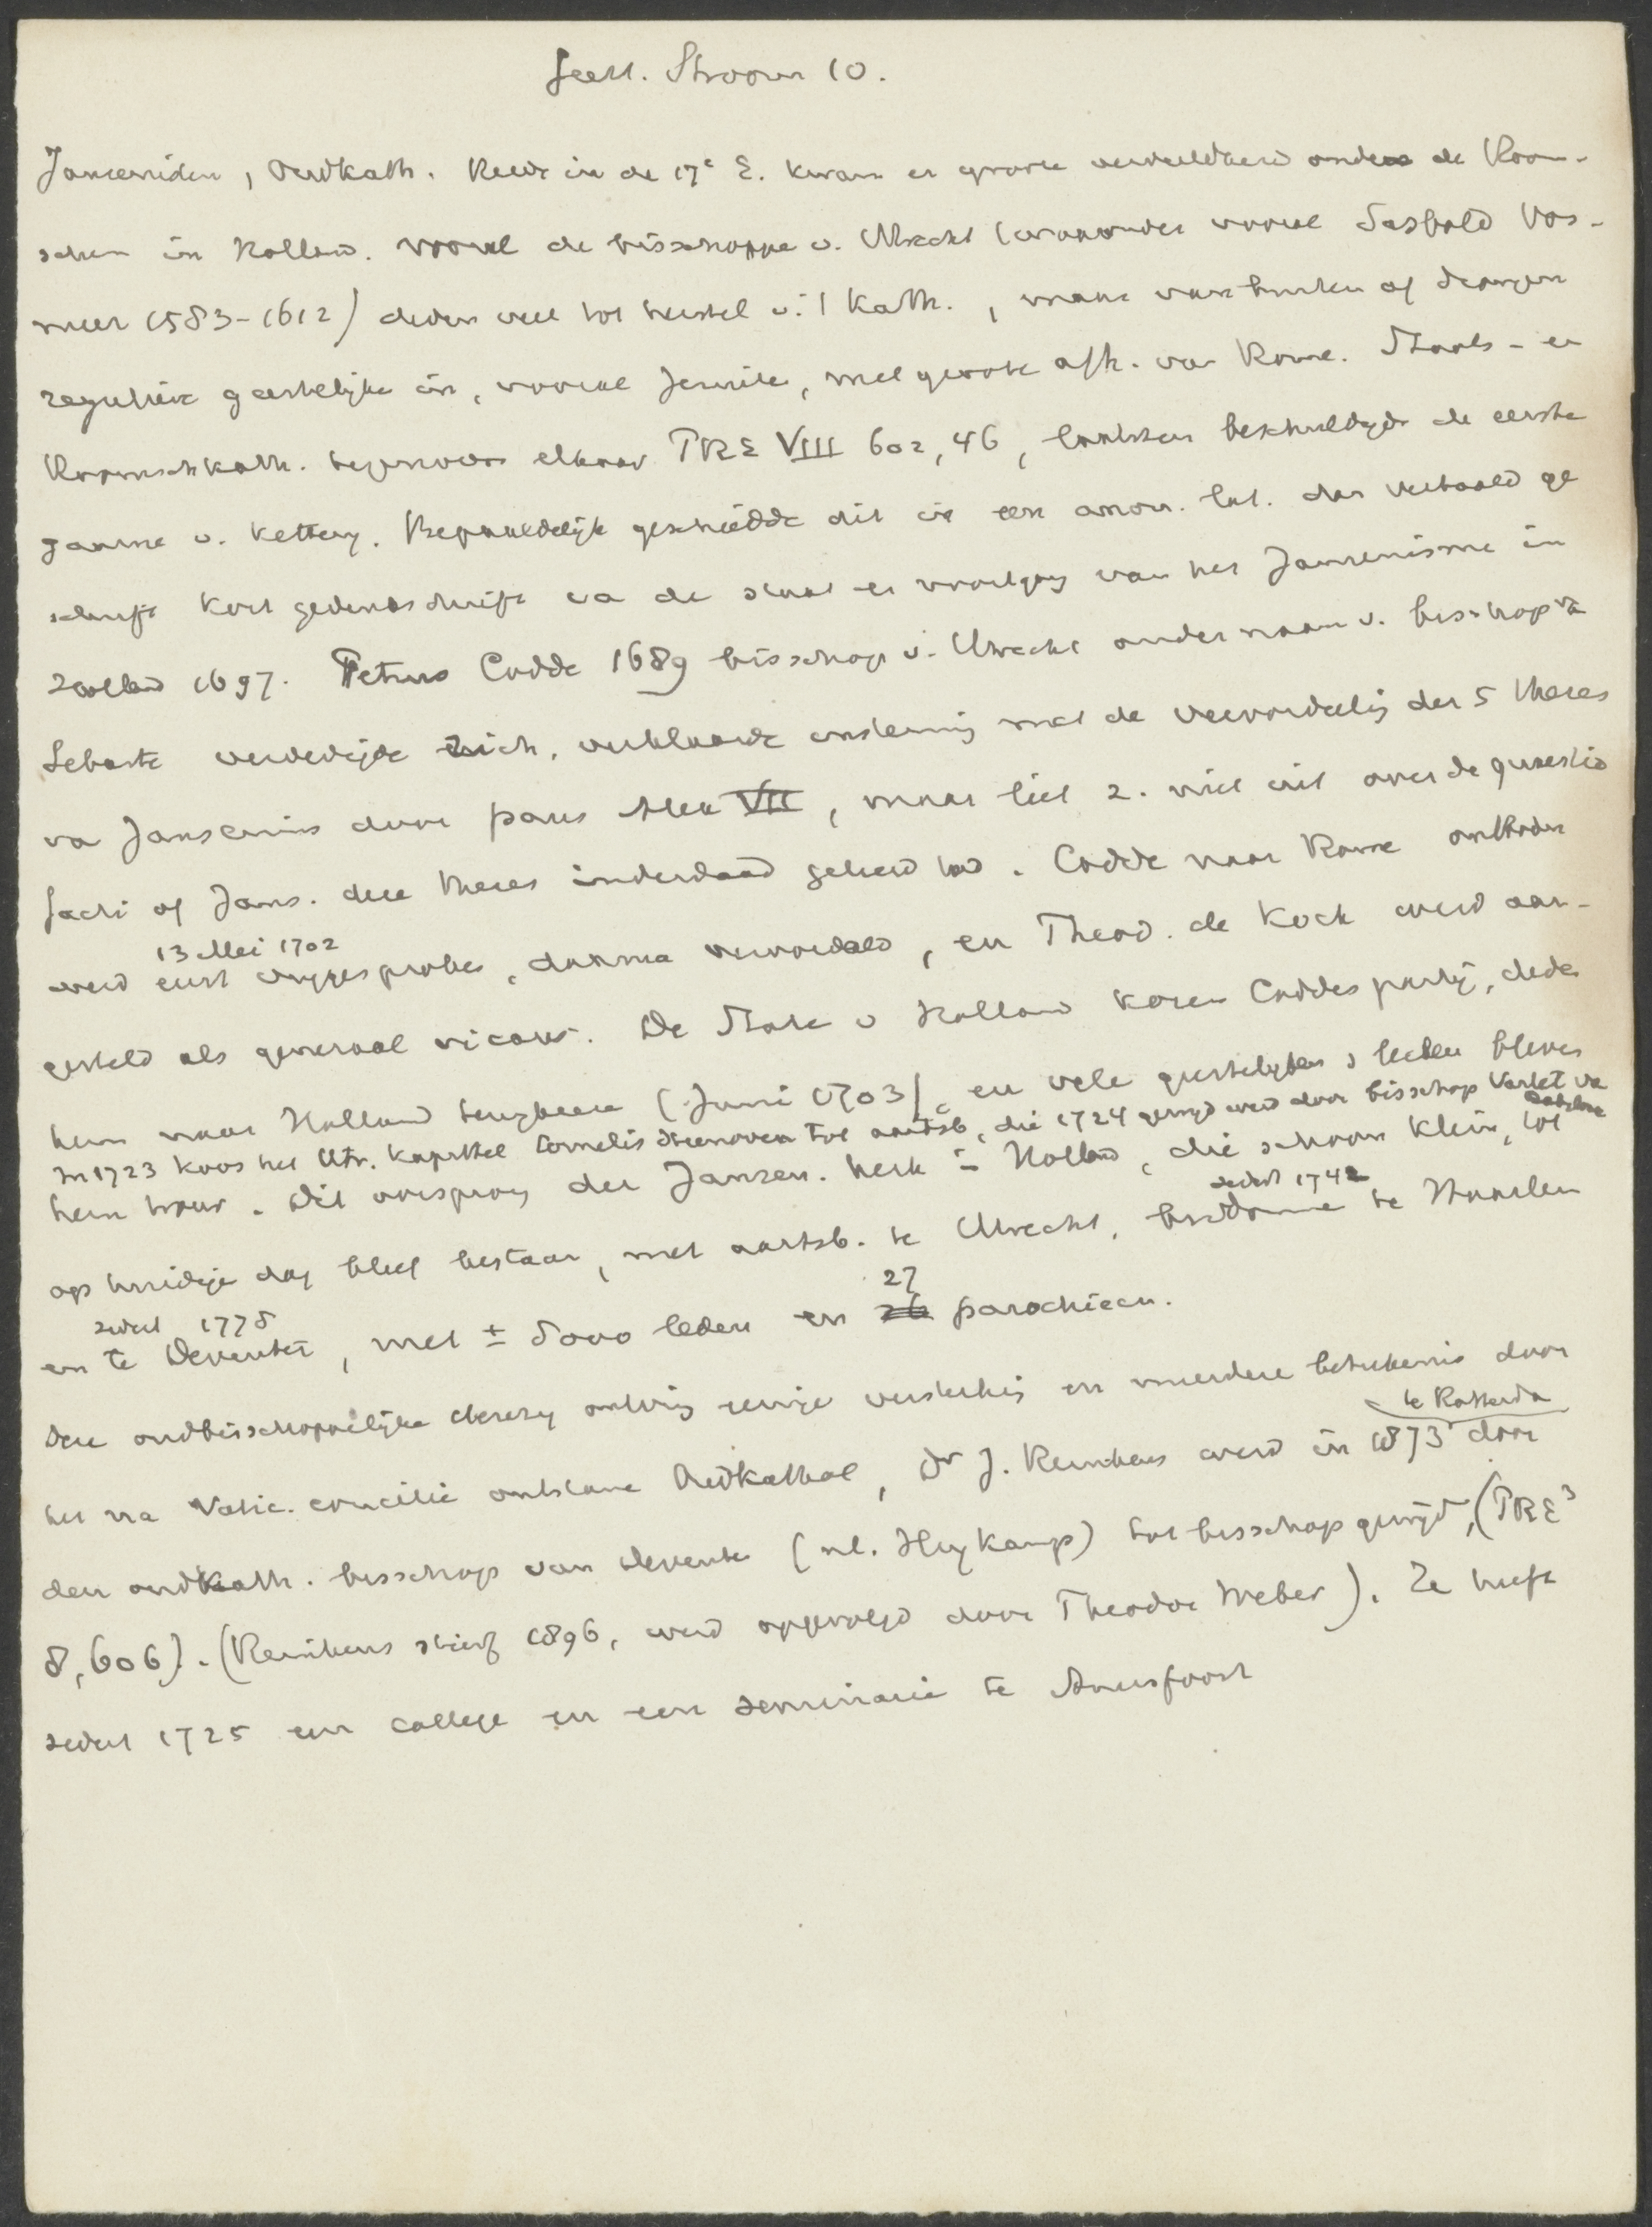 Geest. Stroom 10.
Jansenisten, Oudkath. Reeds in de 17e E. kwam er groote verdeeldheid onder de Room-
schen in Holland. Vooral de bisschoppen v. Utrecht (waaronder vooral Sasbold Vos-
meer 1583-1612) deden veel tot herstel v. 't Kath., maar van buiten af drongen
reguliere geestelijke in, vooral Jezuite, met groote afh. van Rome. Staats- en
Roomschkath. tegenover elkaar PRE VIII 602, 46, laatsten beschuldigde de eerste
gaarne v. kettery. Bepaaldelijk geschiedde dit in een anon. lat. dan vertaald ge
schrift kort gedenkschrift va de staat en voortgang van het Jansenisme in
Holland 1697. Petrus Codde 1689 bisschop v. Utrecht onder naam v. bisschop va
Sebaste verdedigde zich, verklaarde instemming met de veroordeeling der 5 theses
va Jansenius door paus Alex VII, maar liet z. niet uit over de quaestio
facti of Jans. deze theses inderdaad geleerd had. Codde naar Rome ontboden
13 Mei 1702
werd eerst vrijgesproken, daarna veroordeeld, en Theod. de Kock werd aan-
gesteld als generaal vicaris. De State v Holland kozen Coddes partij, dede
hem naar Holland terugkeere (Juni 1703), en vele geestelijken & leeken bleven
In 1723 koos het Utr. kapittel Cornelis Steenoven tot aartsb., die 1724 gewijd werd door bisschop Varlet va
hem trouw. Dit oorsprong der Jansen. kerk in Holland, die schoon klein, tot
sedert 1742
op huidige dag bleef bestaan, met aartsb. te Utrecht, bisdomme te Haarlem
sedert 1778 27
en te Deventer, met ± 5000 leden en 26 parochieen.
Deze oudbisschoppelijke clerezy ontving eenige versterking en meerdere beteekenis door
te Rotterda
het na Vatic. concilie ontstane Oudkathol, Dr J. Reinkens werd in 1873 door
den oudkath. bisschop van Deventer (nl. Heykamp) tot bisschop gewijd, (PRE³
8, 606). (Reinkens stierf 1896, werd opgevolgd door Theodor Weber). Ze heeft
sedert 1725 een college en een seminarie te Amersfoort